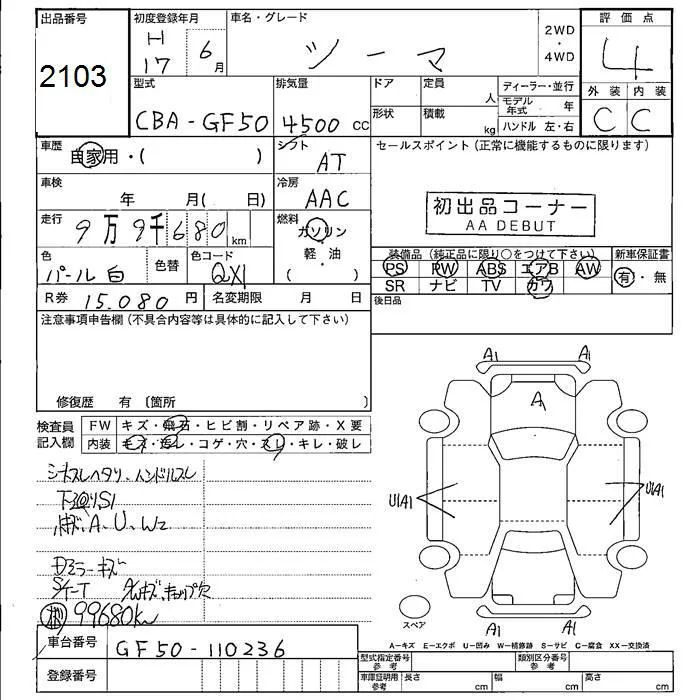 出品番号
2103
初度登録年月
H17 6月
車名・グレード
シーマ
2WD
・
4WD
評価点
4
外装 内装
C C
型式
CBA-GF50
排気量
4500 cc
ドア
定員
人
形状
積載
kg
ディーラー・並行
モデル年式 年
ハンドル 左・右
車歴
自家用・( )
シフト
AT
セールスポイント(正常に機能するものに限ります)
初出品コーナー
AA DEBUT
車検
年 月( 日)
冷房
AAC
走行
9万9千680 km
燃料
ガソリン・
軽・油
( )
色
パール白
色替
色コード
QX1
装備品(純正品に限り○をつけて下さい)
PS PW ABS エアB AW
SR ナビ TV カワ
新車保証書
有・無
後日品
R券 15.080円
名変期限 月 日
注意事項申告欄(不具合内容等は具体的に記入して下さい)
修復歴 有 〔箇所 〕
検査員
記入欄
FW キズ・飛石・ヒビ割・リペア跡・X要
内装 キズ・汚レ・コゲ・穴・スレ・キレ・破レ
シートスレヘタリ、ハンドルスレ
下廻りS1
キズ、A、U、W2
Dミラーキズ
99680km
A1 A1
A
U1A1 U1A1
A1 A1
スペア
A−キズ E−エクボ U−凹み W−補修跡 S−サビ C−腐食 XX−交換済
車台番号
GF50-110236
登録番号
型式指定番号
参考
類別区分番号
参考
車庫証明用
参考
長さ cm
幅 cm
高さ cm